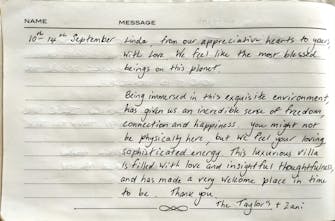 NAME MESSAGE
10th 14th September Linda, from our appreciative hearts to yours,
With Love. We feel like the most blessed
beings on this planet.
Being immersed in this exquisite environment,
has given us an incredible sense of freedom,
connection and happiness you might not
be physically here, but we feel your loving
sophisticated energy. This luxurious Villa
is filled with love and insightful thoughtfulness,
and has made a very welcome place in time
to be. Thank you
The Taylors + Zani